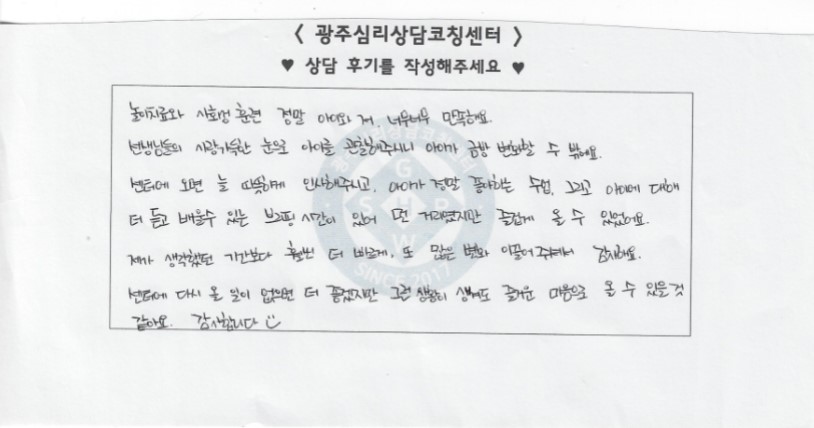 < 광주심리상담코칭센터 >
♥ 상담 후기를 작성해주세요 ♥
놀이치료와 사회성 훈련 정말 아이와 저, 너무너무 만족해요.
선생님들의 사랑가득한 눈으로 아이를 관찰해주시니 아이가 금방 변화할 수 밖에요.
센터에 오면 늘 따뜻하게 인사해주시고, 아이가 정말 좋아하는 수업, 그리고 아이에 대해
더 듣고 배울수 있는 브리핑 시간이 있어 먼 거리였지만 즐겁게 올 수 있었어요.
제가 생각했던 기간보다 훨씬 더 빠르게, 또 많은 변화 이끌어주셔서 감사해요.
센터에 다시 올 일이 없으면 더 좋겠지만 그런 상황이 생겨도 즐거운 마음으로 올 수 있을것
같아요. 감사합니다
GSHPW
SINCE 2017